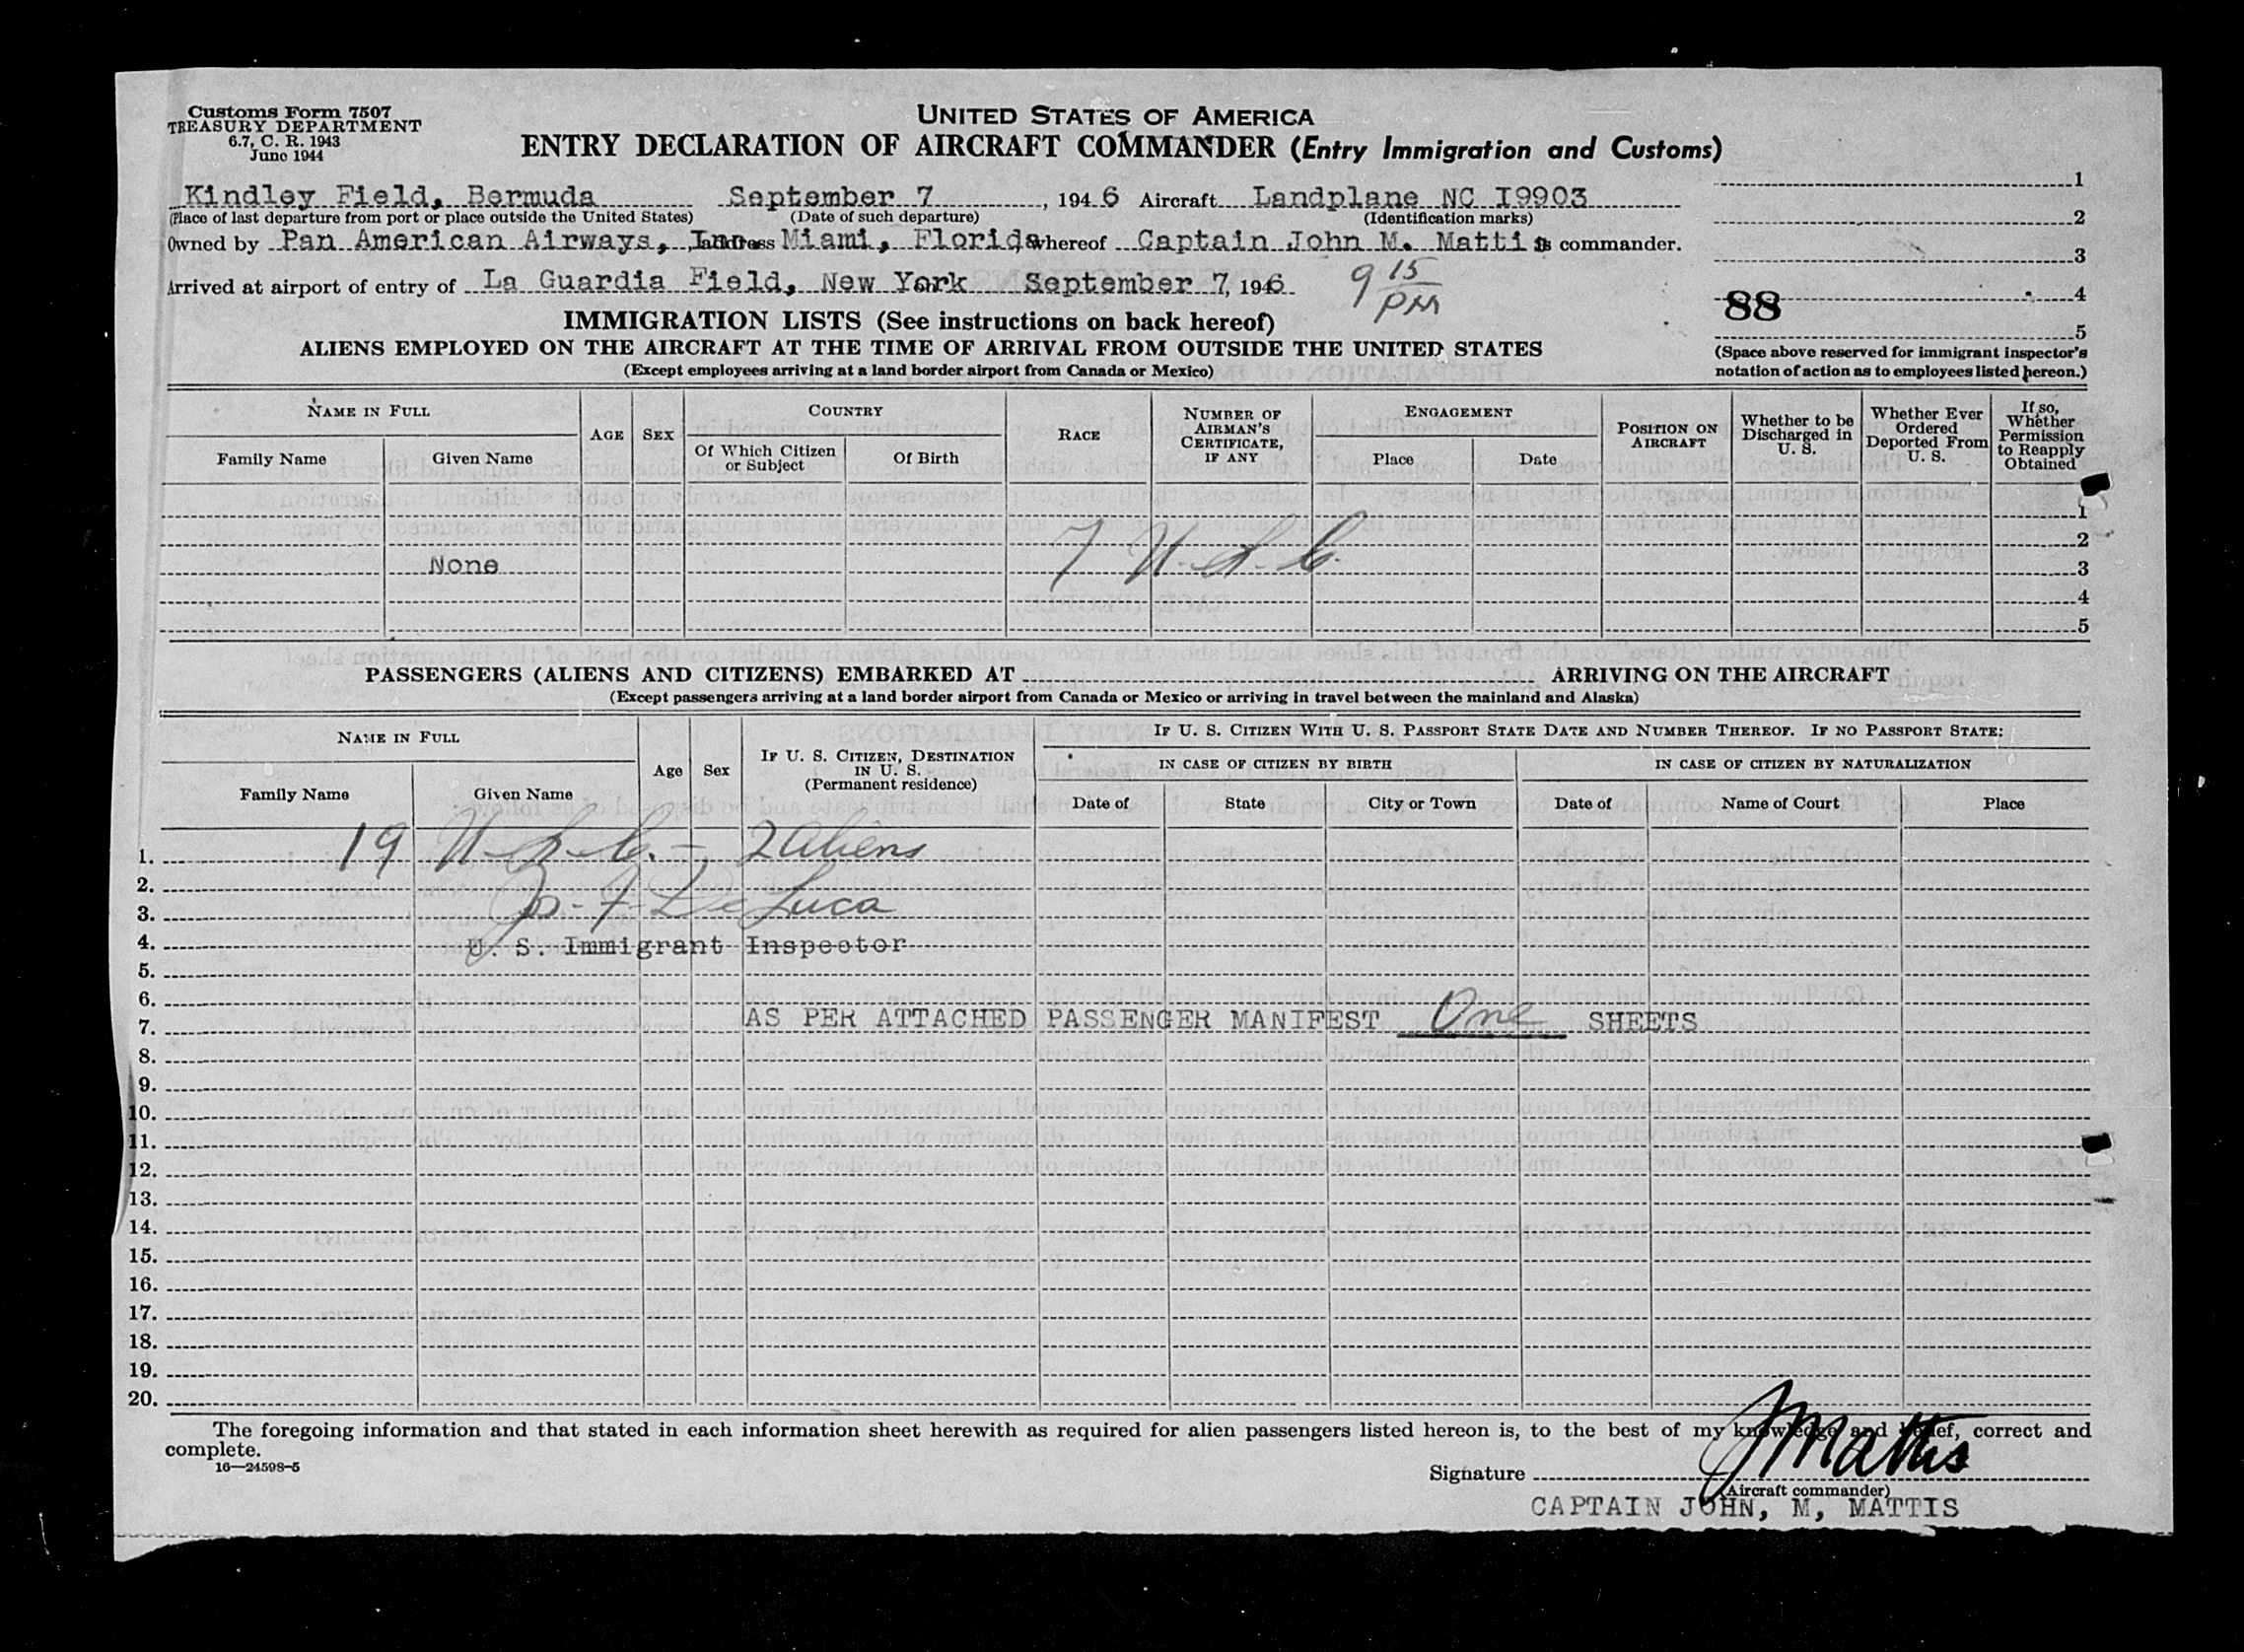 Customs Form 7507
TREASURY DEPARTMENT
6.7, C. R. 1943
June 1944
UNITED STATES OF AMERICA
ENTRY DECLARATION OF AIRCRAFT COMMANDER (Entry Immigration and Customs)
Kindley Field, Bermuda September 7, 1946 Aircraft Landplane NC I9903
(Place of last departure from port or place outside the United States) (Date of such departure) (Identification marks)
Owned by Pan American Airways, Inc. address Miami, Florida whereof Captain John M. Mattis is commander.
Arrived at airport of entry of La Guardia Field, New York September 7, 1946 9 15 PM
1
2
3
88 4
5
(Space above reserved for immigrant inspector's
notation of action as to employees listed hereon.)
IMMIGRATION LISTS (See instructions on back hereof)
ALIENS EMPLOYED ON THE AIRCRAFT AT THE TIME OF ARRIVAL FROM OUTSIDE THE UNITED STATES
(Except employees arriving at a land border airport from Canada or Mexico)
NAME IN FULL
Family Name Given Name
AGE SEX
COUNTRY
Of Which Citizen or Subject Of Birth
RACE
NUMBER OF AIRMAN'S CERTIFICATE, IF ANY
ENGAGEMENT
Place Date
POSITION ON AIRCRAFT
Whether to be Discharged in U. S.
Whether Ever Ordered Deported From U. S.
If so, Whether Permission to Reapply Obtained
1
2
None 7 U.S.C. 3
4
5
PASSENGERS (ALIENS AND CITIZENS) EMBARKED AT ARRIVING ON THE AIRCRAFT
(Except passengers arriving at a land border airport from Canada or Mexico or arriving in travel between the mainland and Alaska)
NAME IN FULL
Family Name Given Name
Age Sex
IF U. S. CITIZEN, DESTINATION IN U. S.
(Permanent residence)
IF U. S. CITIZEN WITH U. S. PASSPORT STATE DATE AND NUMBER THEREOF. IF NO PASSPORT STATE:
IN CASE OF CITIZEN BY BIRTH IN CASE OF CITIZEN BY NATURALIZATION
Date of State City or Town Date of Name of Court Place
1. 19 U.S.C. - 2 Aliens
2.
3. F. DeLuca
4. U. S. Immigrant Inspector
5.
6.
7. AS PER ATTACHED PASSENGER MANIFEST One SHEETS
8.
9.
10.
11.
12.
13.
14.
15.
16.
17.
18.
19.
20.
The foregoing information and that stated in each information sheet herewith as required for alien passengers listed hereon is, to the best of my knowledge and belief, correct and
complete.
16—24598-5
Signature J M Mattis
(Aircraft commander)
CAPTAIN JOHN, M, MATTIS